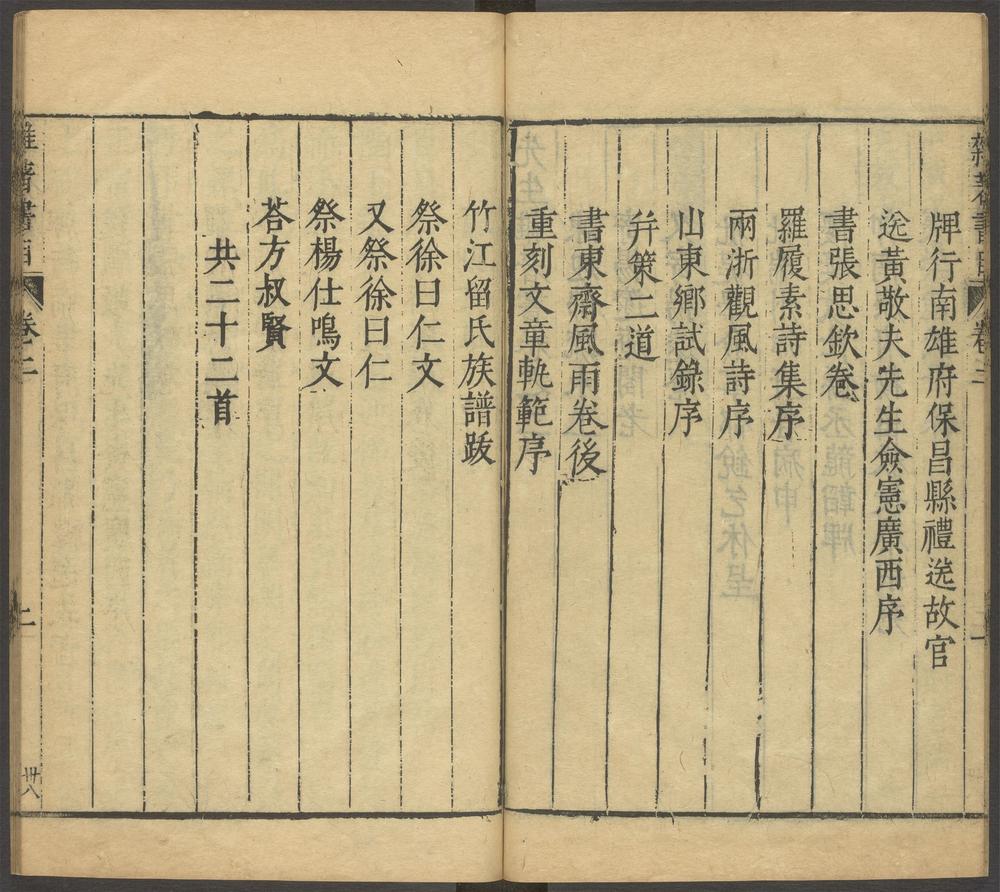 雜著書目 卷二 二
牌行南雄府保昌縣禮送故官
送黃敬夫先生僉憲廣西序
書張思欽卷
羅履素詩集序
兩浙觀風詩序
山東鄉試錄序
幷策二道
書東齋風雨卷後
重刻文章軌範序
竹江留氏族譜跋
祭徐曰仁文
又祭徐曰仁
祭楊仕鳴文
荅方叔賢
共二十二首
雜著書目 卷二 二 卅八